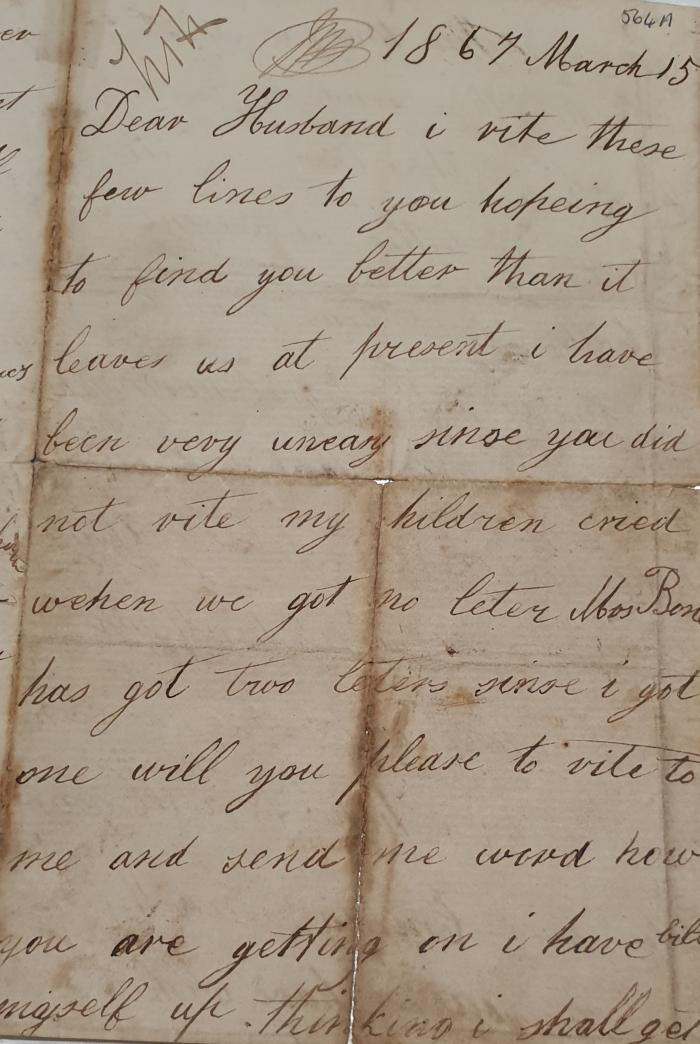 564A
1867 March 15
Dear Husband i vite these
few lines to you hopeing
to find you better than it
leaves us at present i have
been very uneasy sinse you did
not vite my hildren cried
wehen we got no leter Mos Bon
has got two leters sinse i got
one will you please to vite to
me and send me word how
you are getting on i have bilt
myself up thinking i shall get